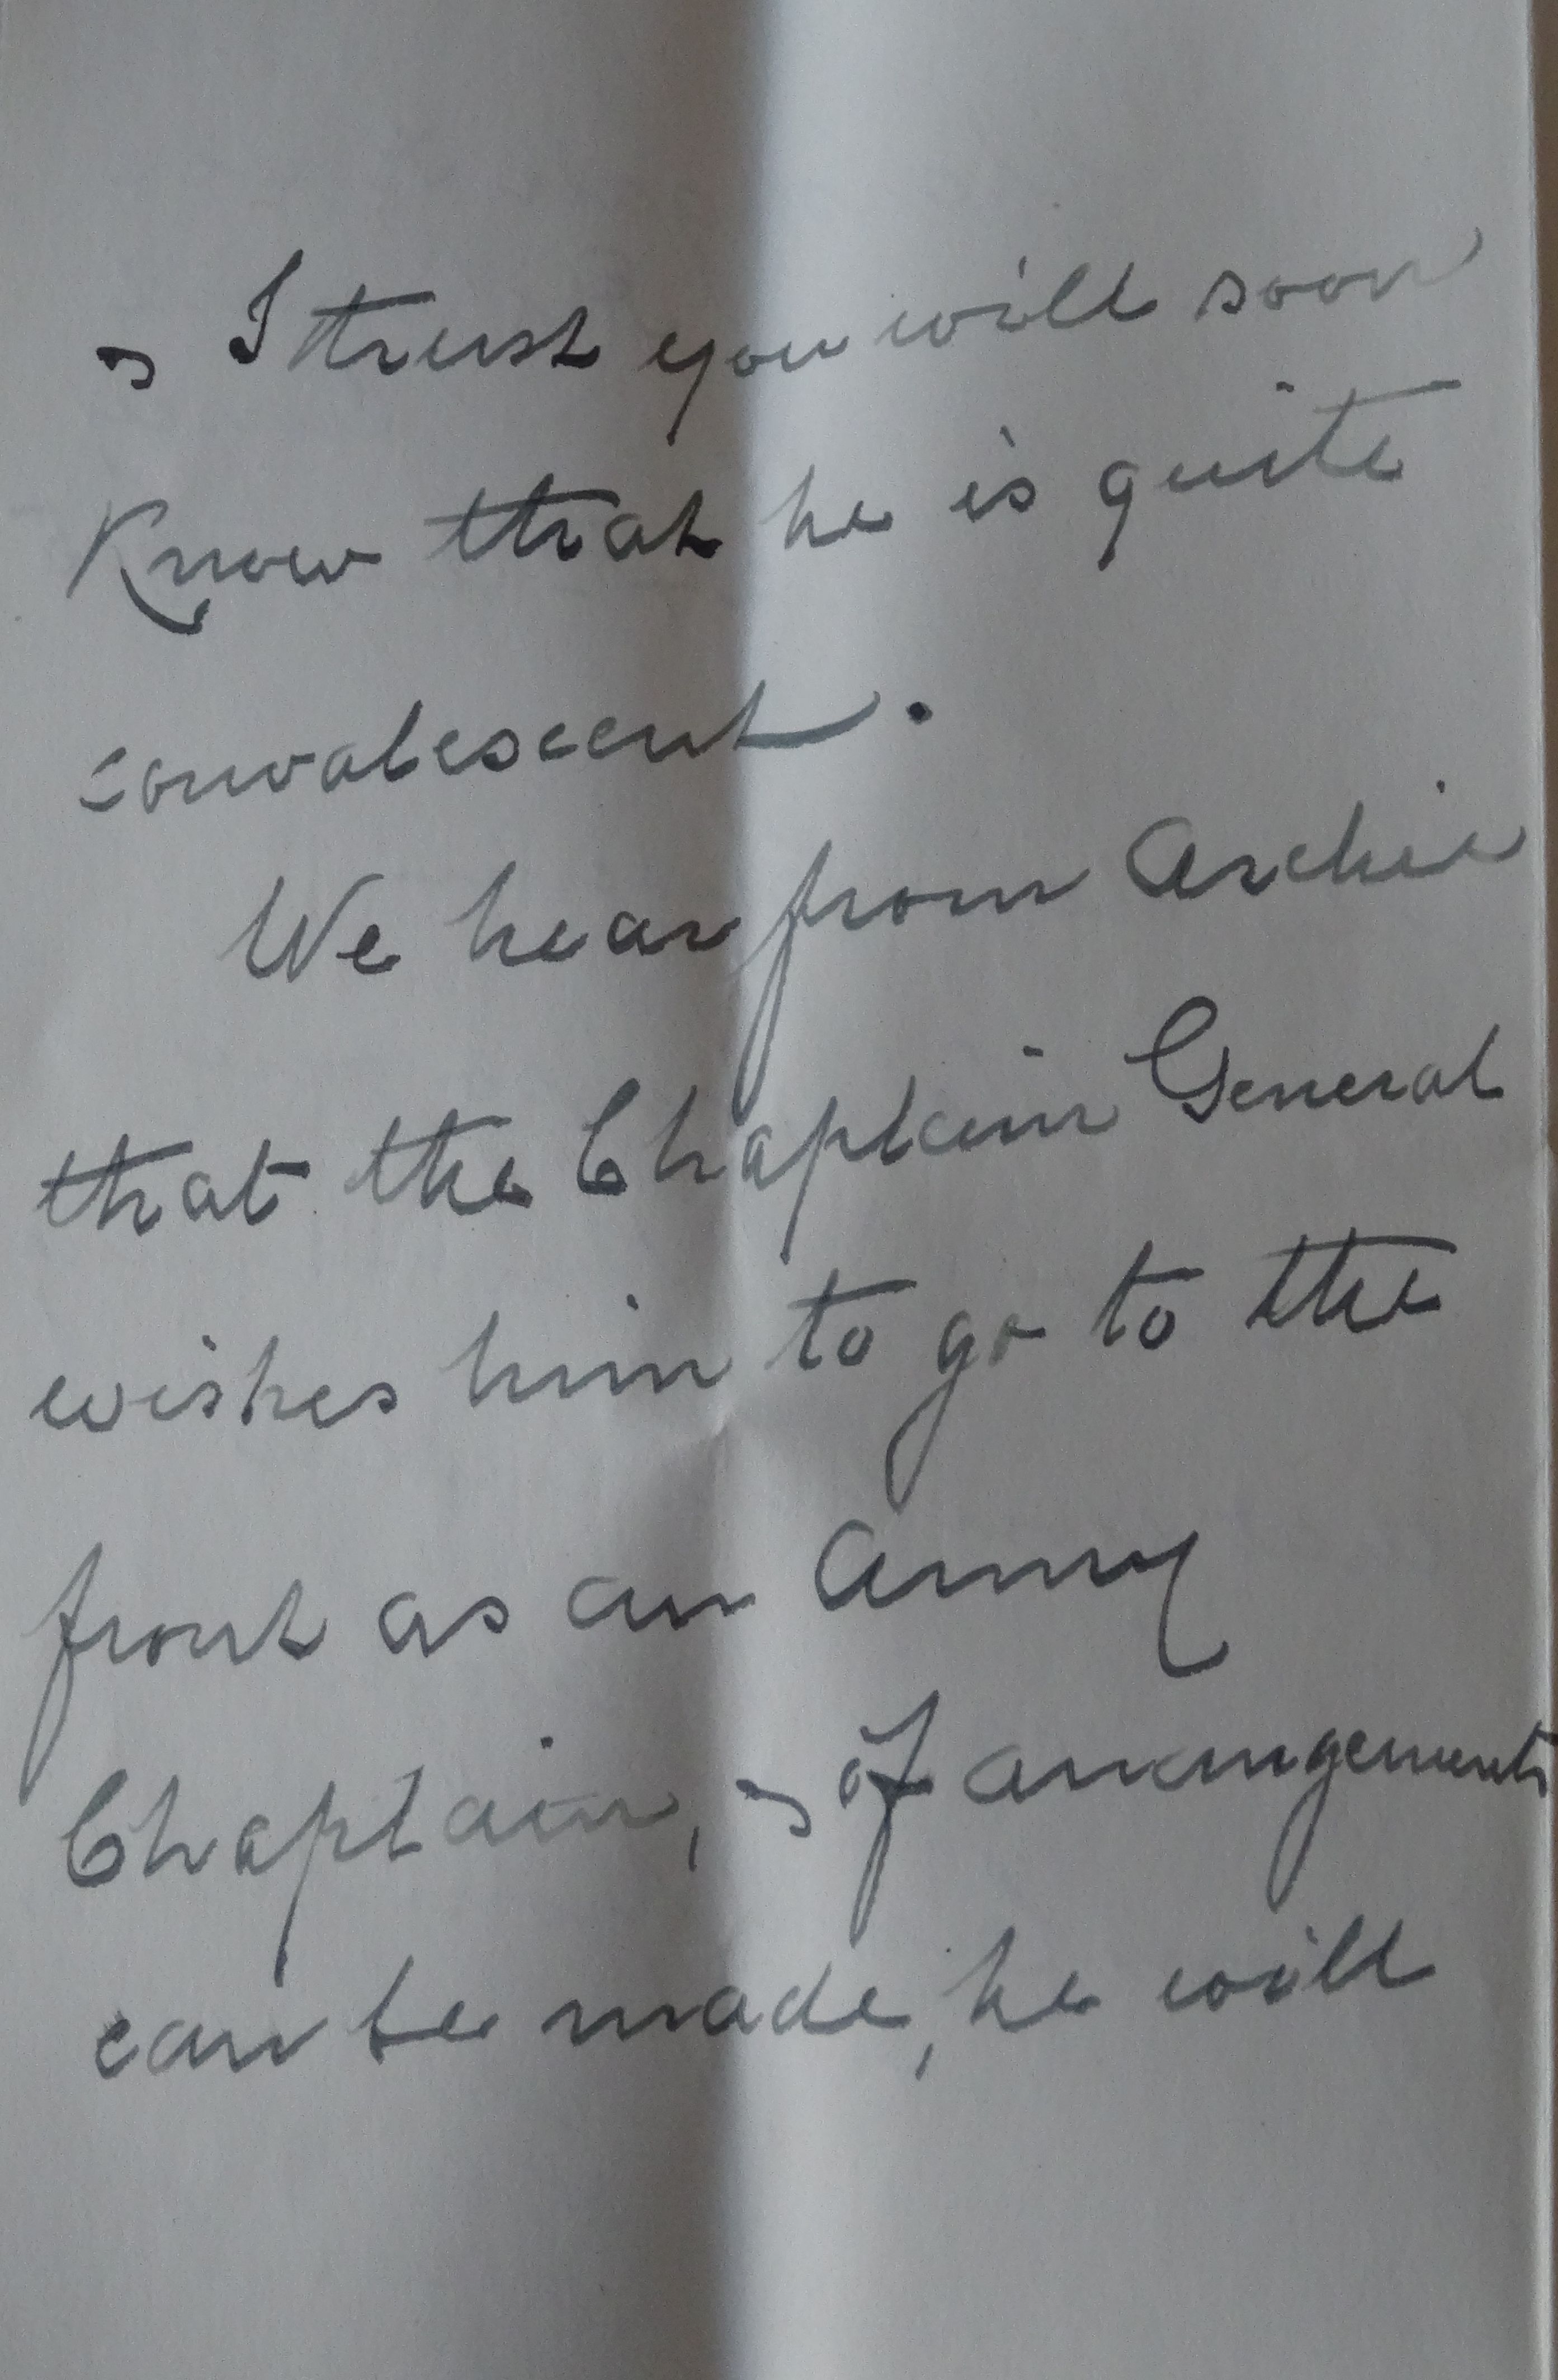 & I trust you will soon
Know that he is quite
convalescent.
We hear from Archie
that the Chaplain General
wishes him to go to the
front as an Army
Chaplain, & if arrangements
can be made, he will